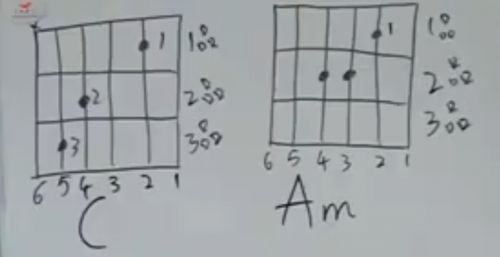 1 1品
2 2品
3 3品
6 5 4 3 2 1
C
1 1品
2品
3品
6 5 4 3 2 1
Am